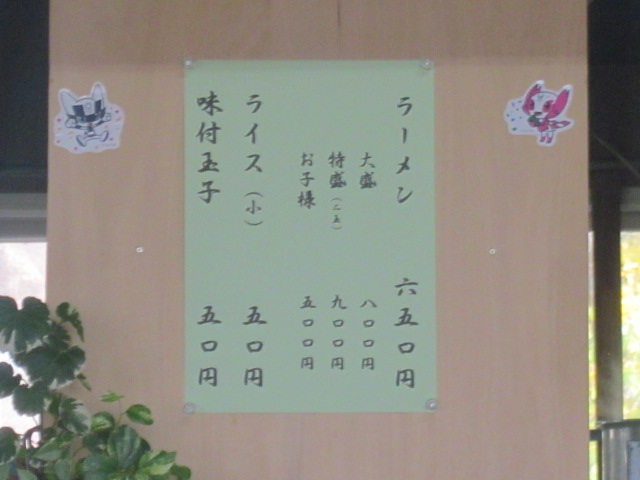 ラーメン 六五〇円
大盛 八〇〇円
特盛（二玉） 九〇〇円
お子様 五〇〇円
ライス（小） 五〇円
味付玉子 五〇円